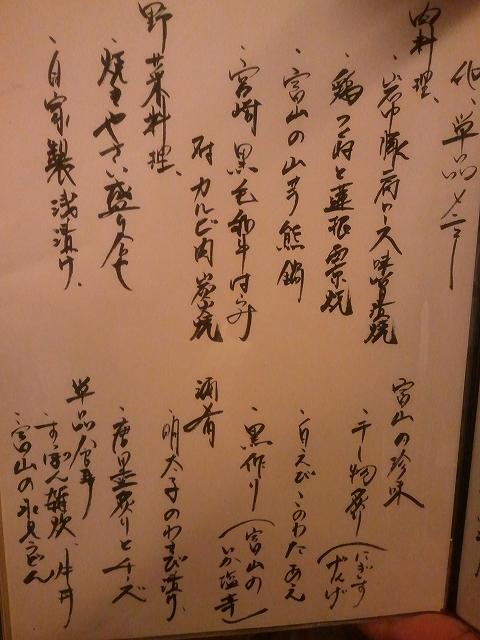 他、単品メニュー
肉料理、
・岩中豚肩ロース味噌漬焼
・鶏つくねと蓮根照焼
・富山の山芋熊鍋
・宮崎黒毛和牛はらみ
肘カルビ肉炭焼
野菜料理、
・焼きやさい盛り合せ
・自家製浅漬け、
富山の珍味
・干し物炙り(にぎす げんげ
・白えびこのわたあえ
・黒作り(富山のいか塩辛)
酒肴
・明太子のわさび漬り、
・唐墨炙りとチーズ
単品食事
・すっぽん雑炊、小丼
・富山の氷見うどん